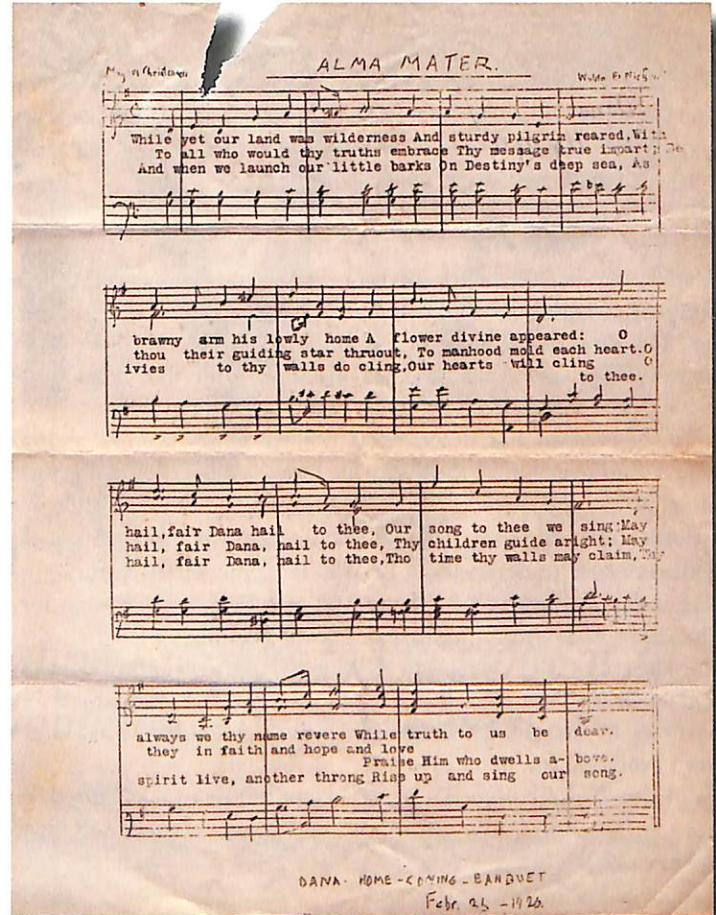 ALMA MATER.
While yet our land was wilderness And sturdy pilgrim reared, With
To all who would thy truths embrace Thy message true impart; Be
And when we launch our little barks On Destiny's deep sea, As
brawny arm his lowly home A flower divine appeared: O
thou their guiding star thruout, To manhood mold each heart. O
ivies to thy walls do cling, Our hearts will cling O
to thee.
hail, fair Dana hail to thee, Our song to thee we sing; May
hail, fair Dana, hail to thee, Thy children guide aright; May
hail, fair Dana, hail to thee, Tho time thy walls may claim, Thy
always we thy name revere While truth to us be dear.
they in faith and hope and love
Praise Him who dwells a- bove.
spirit live, another throng Rise up and sing our song.
DANA - HOME - COMING - BANQUET
Febr. 25 - 1926.